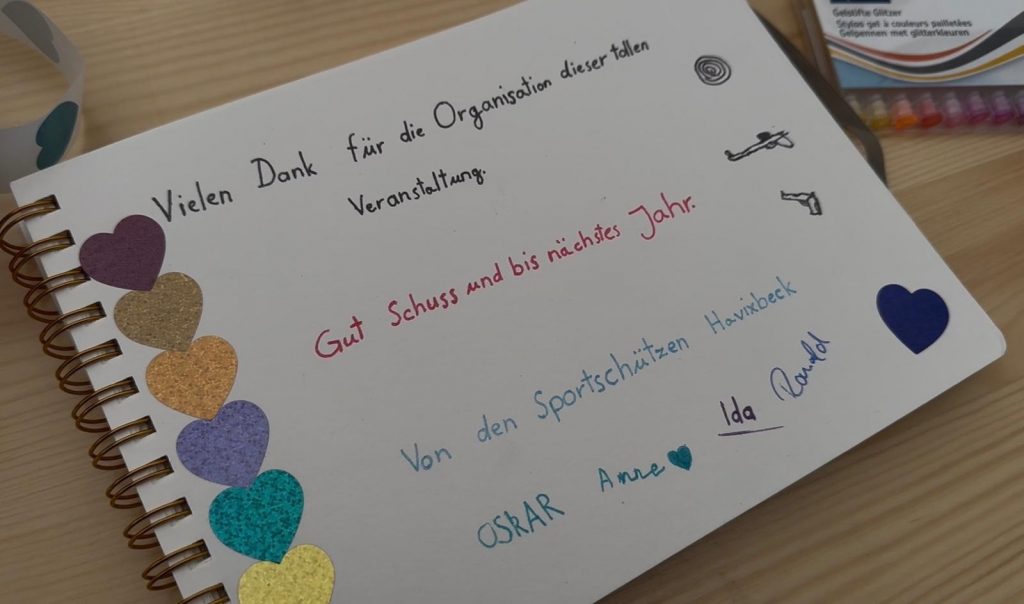 Gelstifte Glitzer
Stylos gel à couleurs pailletées
Gelpennen met glitterkleuren
Vielen Dank für die Organisation dieser tollen
Veranstaltung.
Gut Schuss und bis nächstes Jahr.
Von den Sportschützen Havixbeck
Ida Ronald
OSKAR Anne